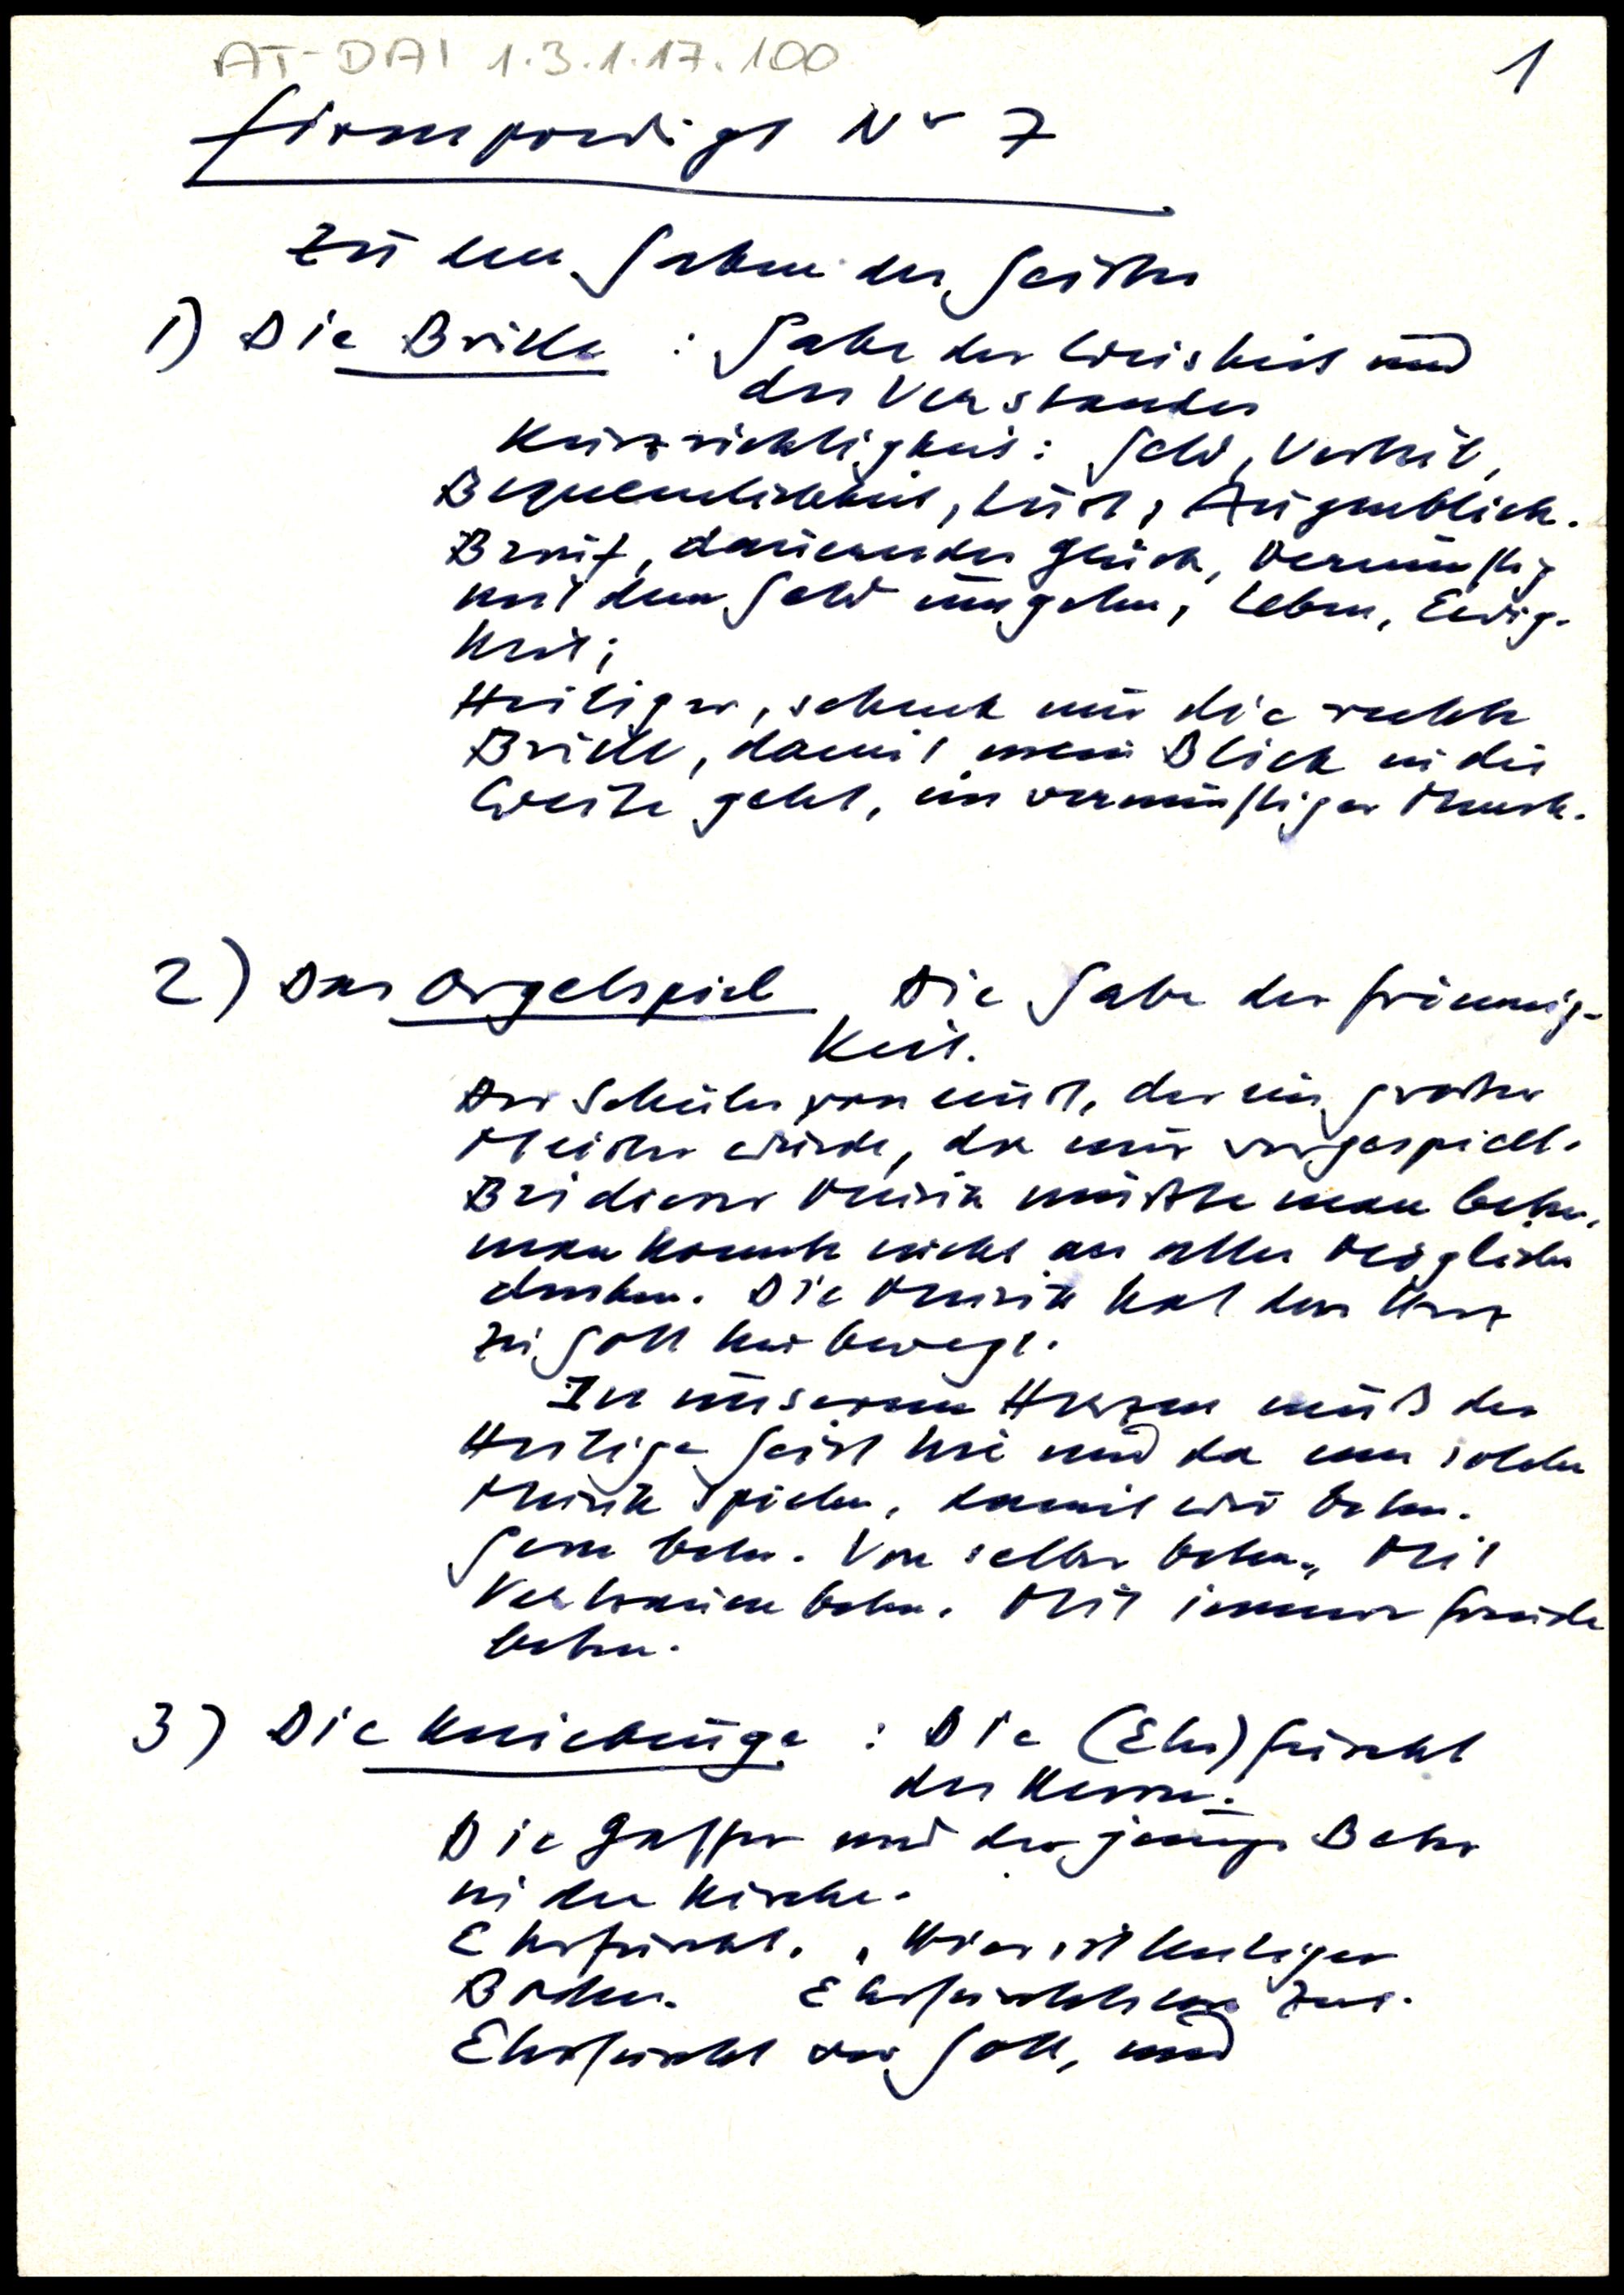 AT-DAI 1.3.1.17.100
1
Firmpredigt Nr 7
Zu den Gaben des Geistes
1) Die Brille : Gabe der Weisheit und
des Verstandes
Kurzsichtigkeit: Geld, Vorteil,
Bequemlichkeit, Lust, Augenblick.
Beruf, dauerndes Glück, vernünftig
mit dem Geld umgehen, Leben, Ewig-
keit;
Heiliger, schenk mir die rechte
Brille, damit mein Blick in die
Weite geht, ein vernünftiger Mensch.
2) Das Orgelspiel Die Gabe der Frömmig-
keit.
Der Schüler von einst, der ein großer
Meister wurde, da mir vorgespielt.
Bei dieser Musik mußte man beten,
man konnte nicht an alles Mögliche
denken. Die Musik hat das Herz
zu Gott hin bewegt.
In unserem Herzen muß der
Heilige Geist hie und da eine solche
Musik spielen, damit wir beten.
Gern beten. Von selber beten, Mit
Vertrauen beten. Mit innerer Freude
beten.
3) Die Kniebeuge : Die (Ehr)furcht
des Herrn.
Die Gaffer und der junge Beter
in der Kirche.
Ehrfurcht. „Hier ist heiliger
Boden. Ehrfurchtslose Zeit.
Ehrfurcht vor Gott, und